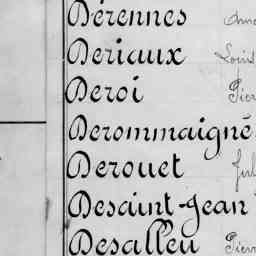 Dérennes
Deriaux Louis
Deroi Pier
Derommaigné
Derouet Jul
Desaint-Jean
Desalleu Pierr